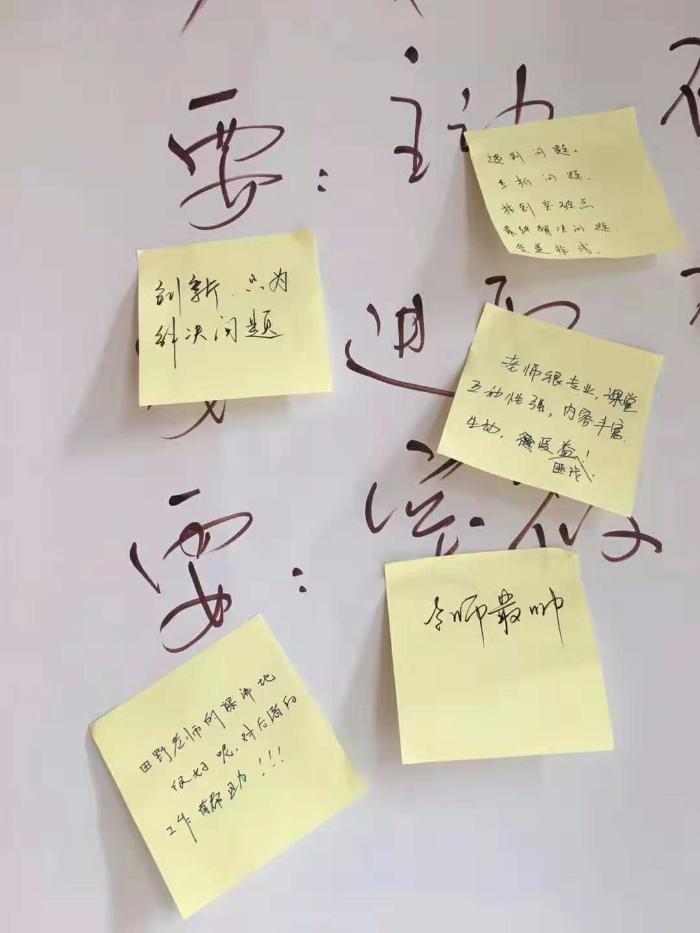 要：主动
遇到问题。
分析问题.
找到突破点
最终解决问题.
创新.只为
解决问题
进取
老师很专业,课堂
互动性强,内容丰富.
生动,很受益!
要：
老师最帅
田野老师的课讲地
很好呢,对后道的
工作有帮助!!!